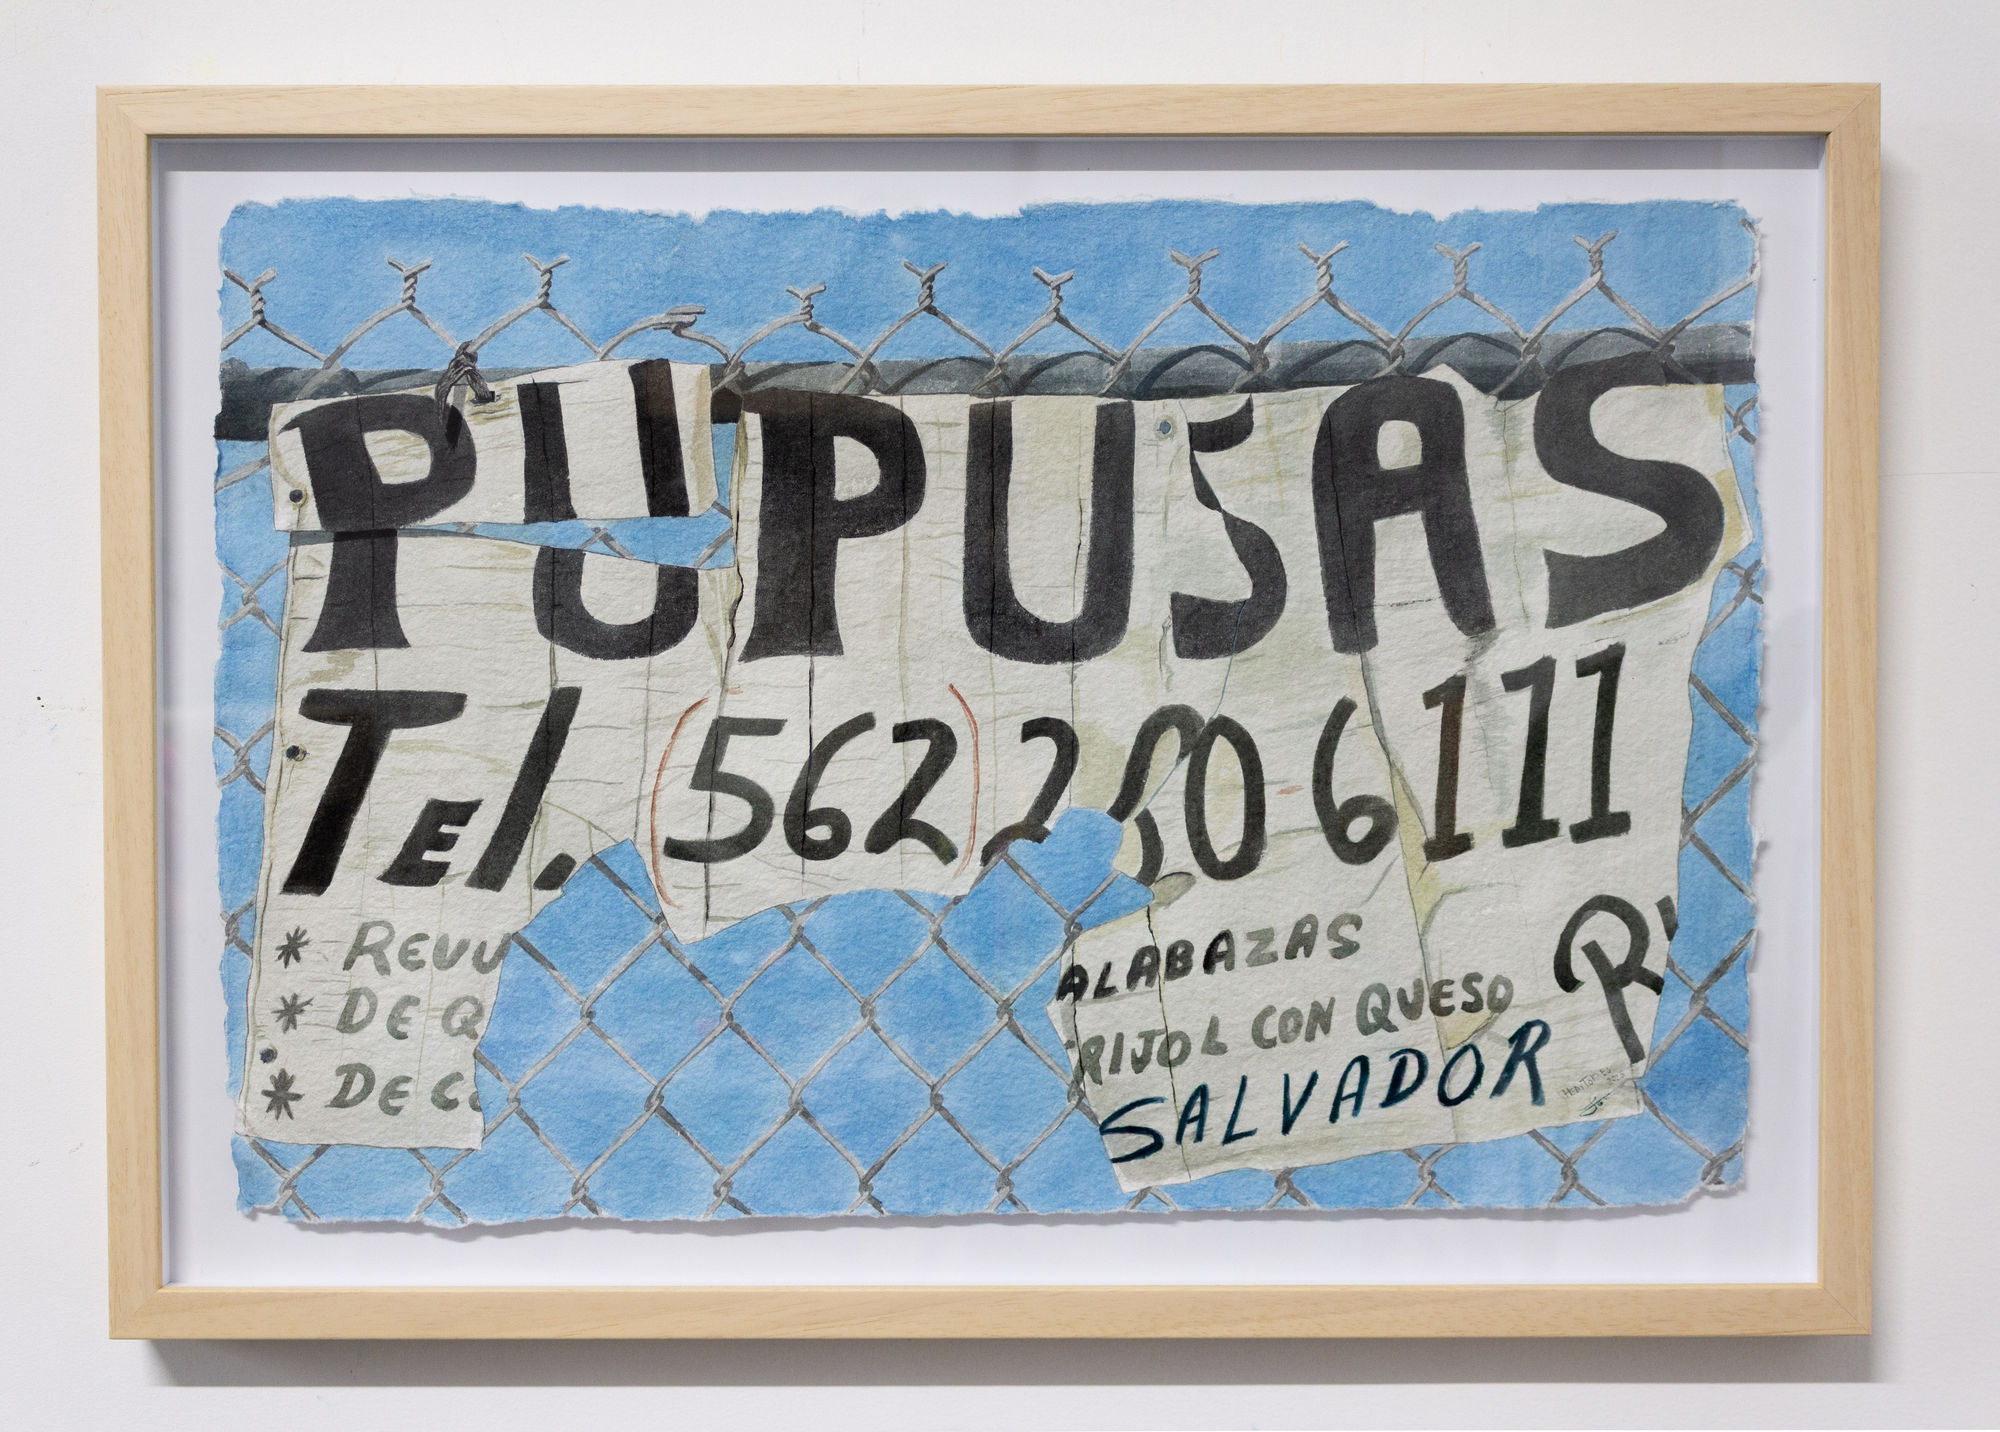 PUPUSAS
Tel. (562) 280-6111
* REVU
* DE Q
* DE C
ALABAZAS
RIJOL CON QUESO
SALVADOR
R